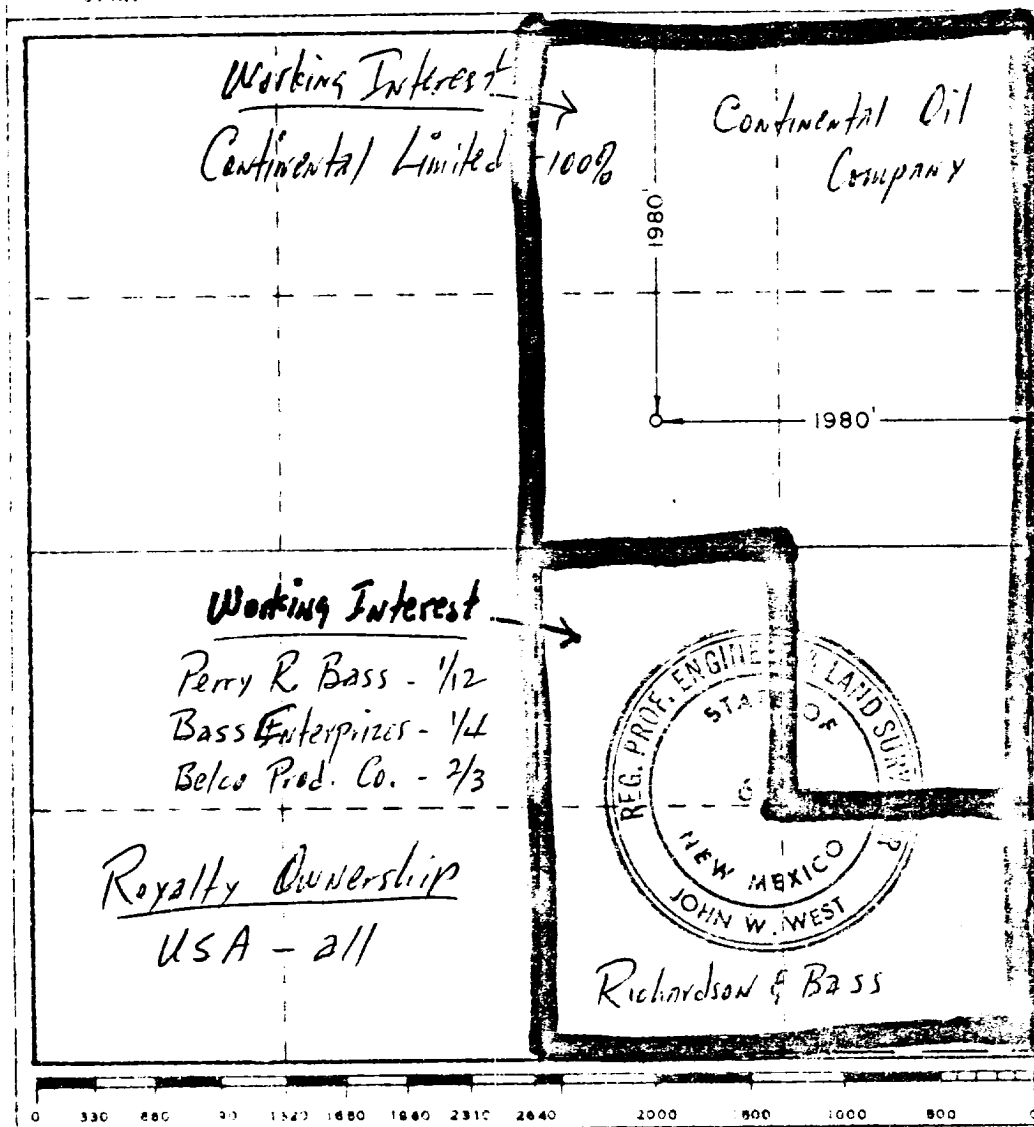 Working Interest
Continental Limited - 100%
Continental Oil
Company
1980'
1980'
Working Interest
Perry R. Bass - 1/12
Bass Enterprizes - 1/4
Belco Prod. Co. - 2/3
Royalty Ownership
USA - all
REG. PROF. ENGINEER & LAND SURV
STATE OF
NEW MEXICO
JOHN W. WEST
Richardson & Bass
0 330 660 90 1320 1650 1980 2310 2640 2000 1500 1000 500 0